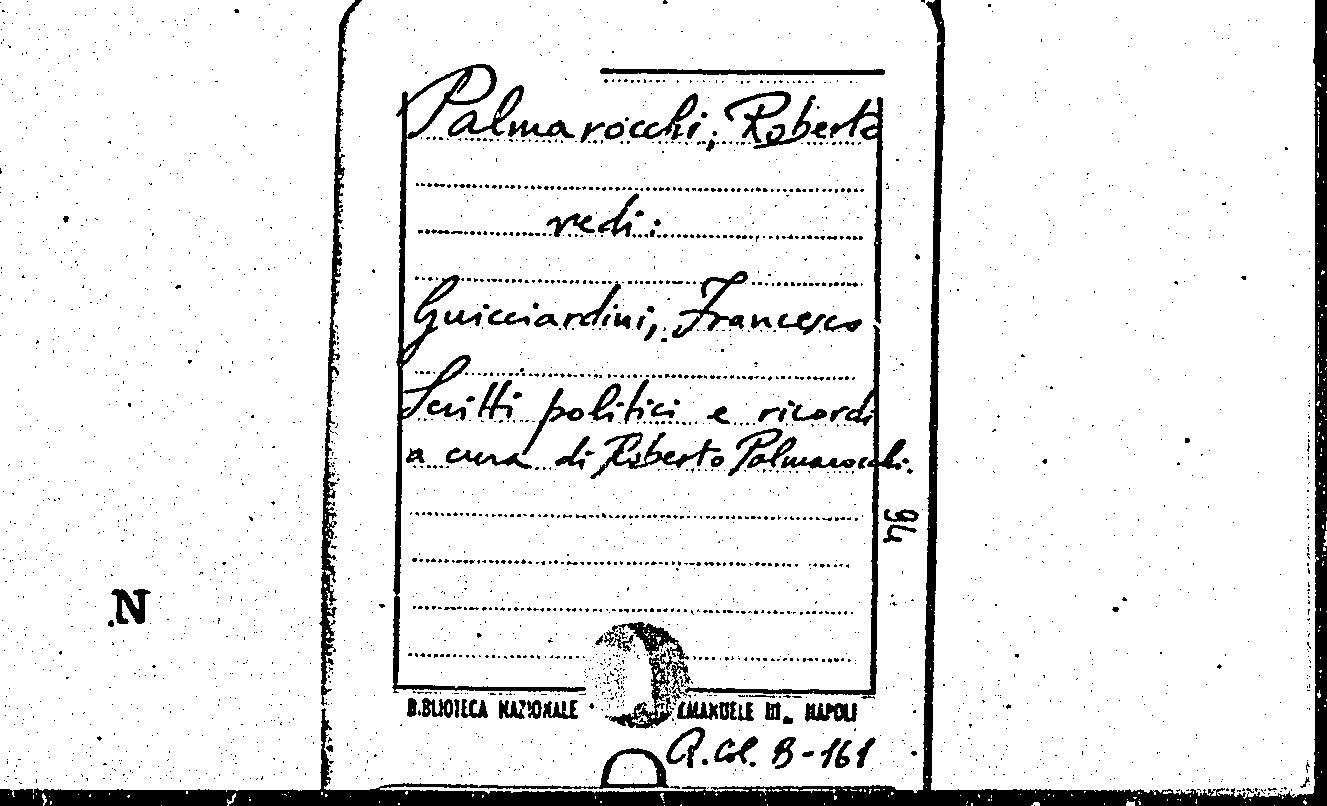 Palmarocchi, Roberto
vedi:
Guicciardini, Francesco
Scritti politici e ricordi
a cura di Roberto Palmarocchi.
94
N
BIBLIOTECA NAZIONALE EMANUELE III. NAPOLI
Col. B-161